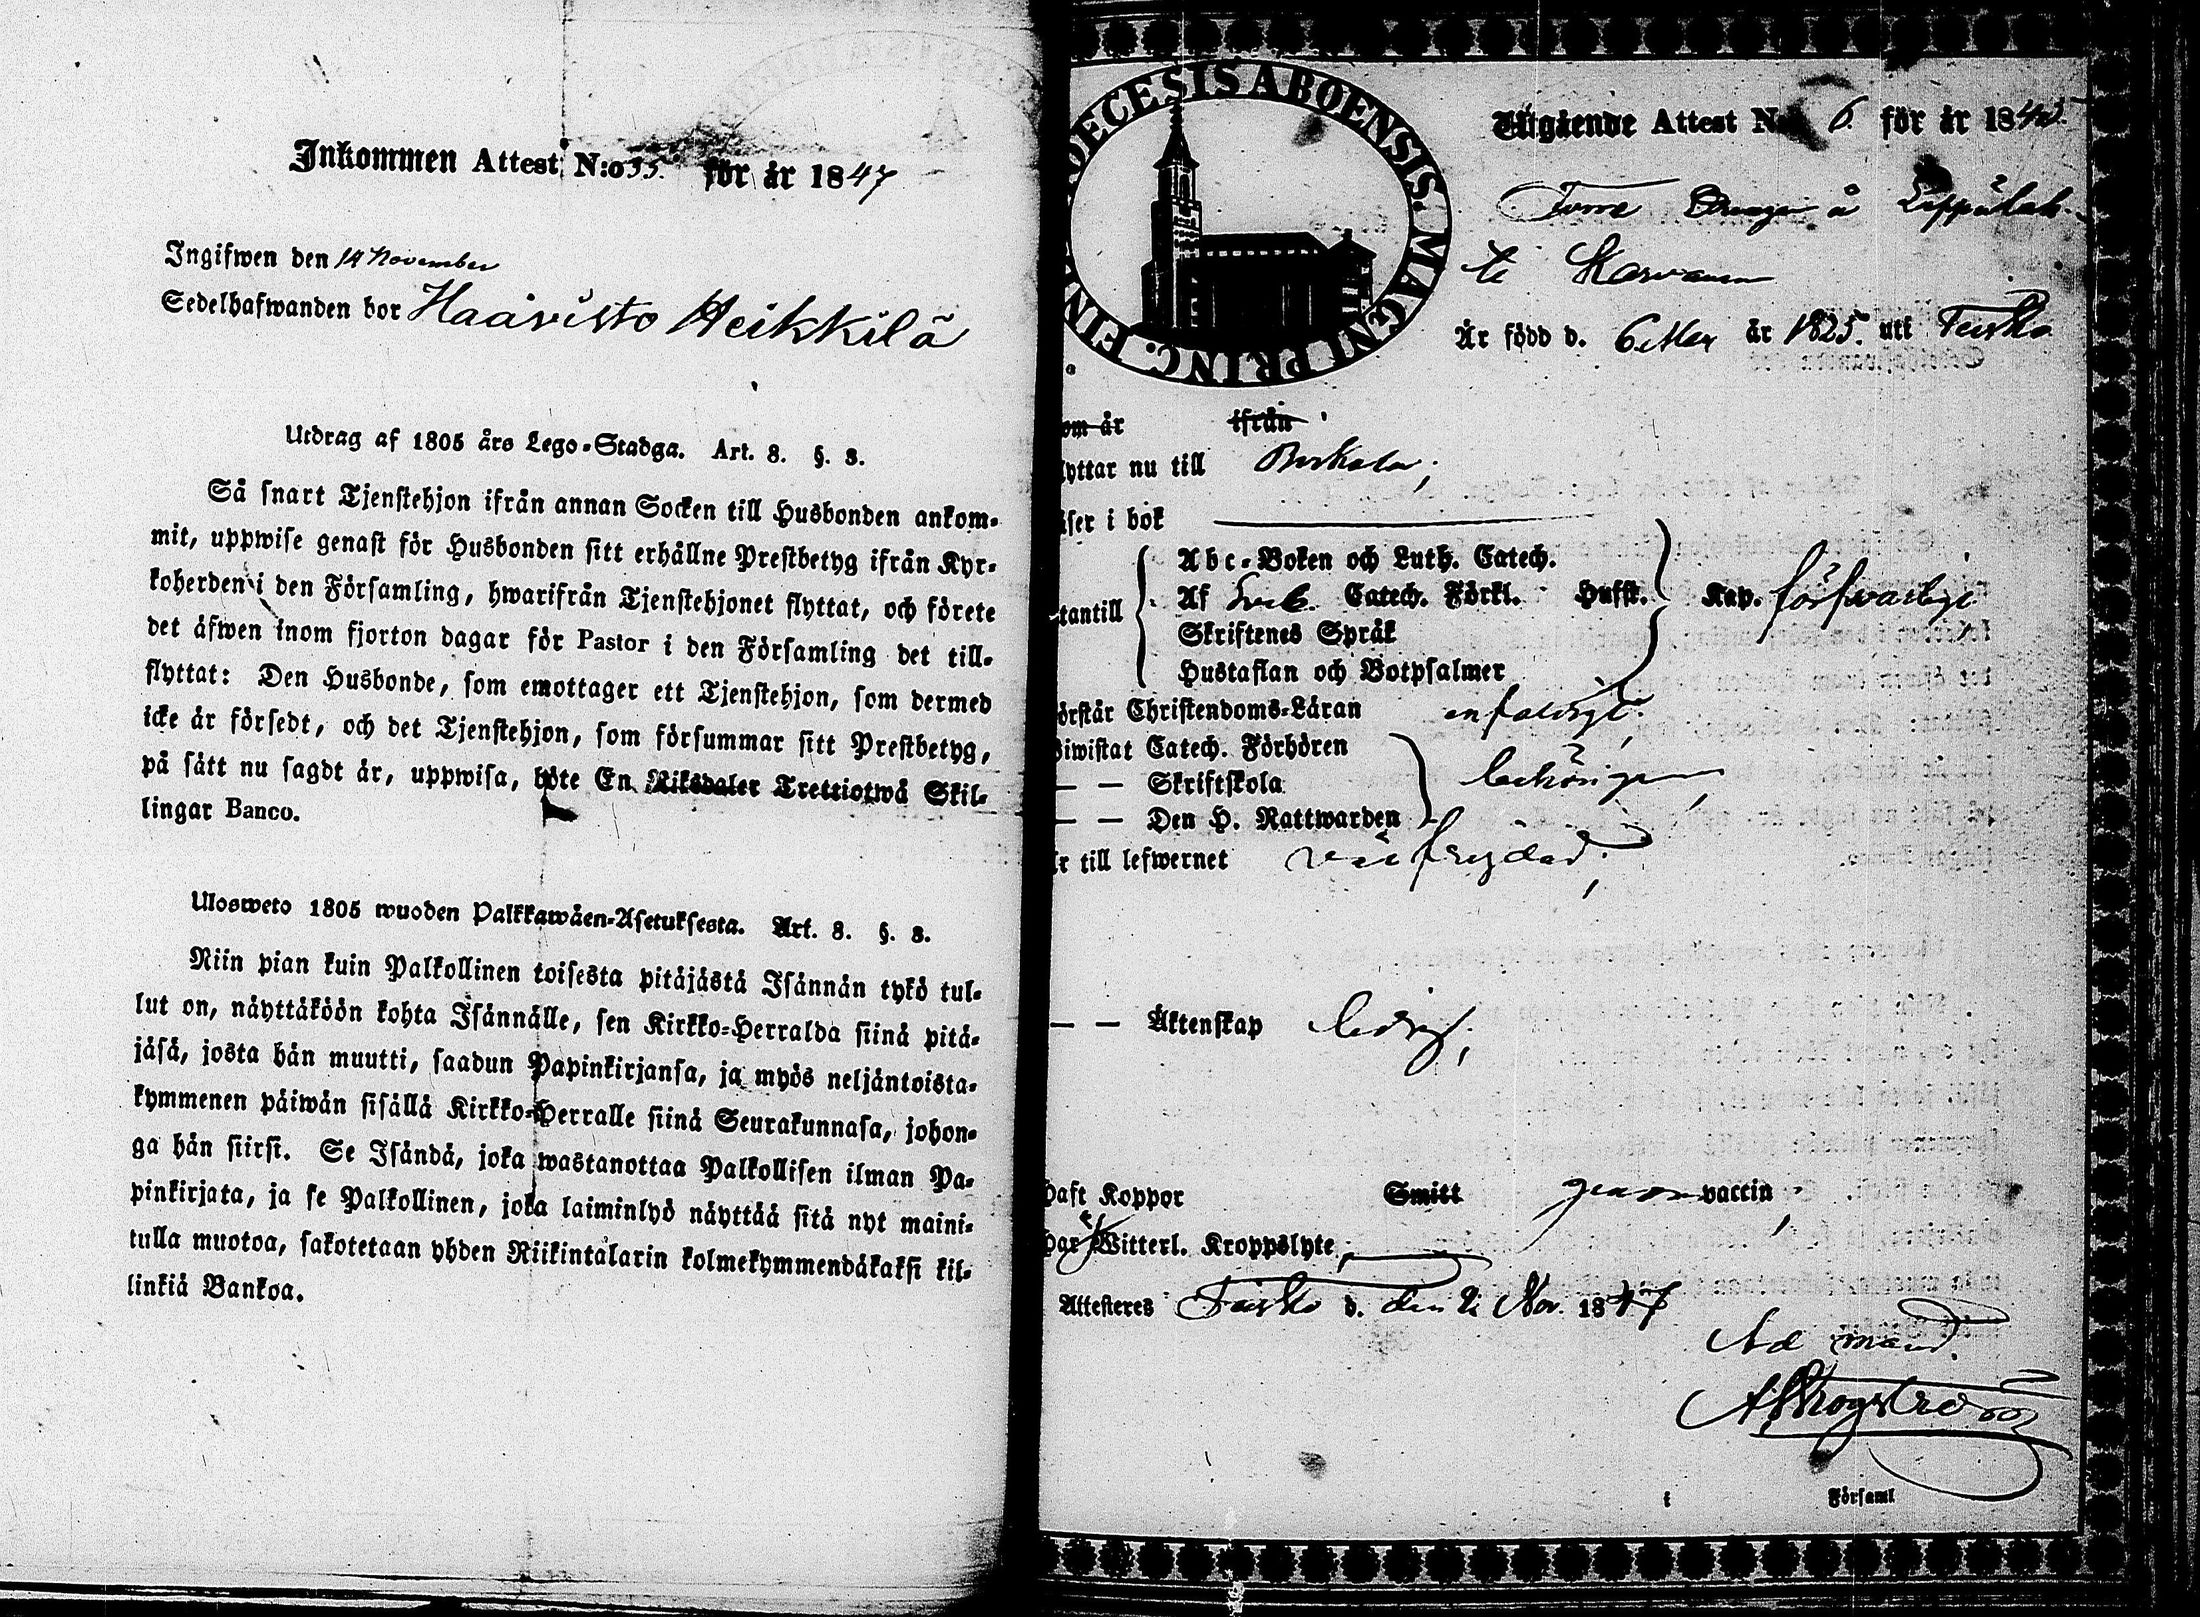 Inkommen Attest N:o 35. för år 1847
Ingifwen den 14 November
Sedelhafwanden bor Haaristo Heikkilä
Utdrag af 1805 års Lego-Stadga. Art. 8. §. 3.
Så snart Tjenstehjon ifrån annan Socken till Husbonden ankom-
mit, uppwise genast för Husbonden sitt erhållne Prestbetyg ifrån Kyr-
koherden i den Församling, hwarifrån Tjenstehjonet flyttat, och förete
det äfwen inom fjorton dagar för Pastor i den Församling det till-
flyttat: Den Husbonde, som emottager ett Tjenstehjon, som dermed
icke är försedt, och det Tjenstehjon, som försummar sitt Prestbetyg,
på sätt nu sagdt är, uppwisa, böte En Riksdaler Trettiotwå Skil-
lingar Banco.
Ulosweto 1805 wuoden Palkkawäen-Asetuksesta. Art. 8. §. 3.
Niin pian kuin Palkollinen toisesta pitäjästä Isännän tykö tul-
lut on, näyttäköön kohta Isännälle, sen Kirkko-Herralda siinä pitä-
jäsä, josta hän muutti, saadun Papinkirjansa, ja myös neljäntoista-
kymmenen päiwän sisällä Kirkko-Herralle siinä Seurakunnasa, johon-
ga hän siirsi. Se Isändä, joka wastanottaa Palkollisen ilman Pa-
pinkirjata, ja se Palkollinen, joka laiminlyö näyttää sitä nyt maini-
tulla muotoa, sakotetaan yhden Riikintalarin kolmekymmendäkaksi kil-
linkiä Bankoa.
DIOECESIS ABOENSIS. MAGNI PRINC. FIN
Utgående Attest N:o 6. för år 184
å
Är född d. 6 år 1825. uti Teisko
om är ifrån
lyttar nu till Birkala;
äser i bok
Abc-Boken och Luth. Catech.
tantill Af Sveb. Catech. Förkl. Hufst. Kap. försvarligt
Skriftenes Språk
Hustaflan och Botpsalmer
örstår Christendoms-Läran enfaldigt;
iwistat Catech. Förhören
— — Skriftskola behörigen,
— — Den H. Nattwarden
är till lefwernet välfrejdad;
— — Äktenskap ledig;
haft Koppor Smitt genom vaccin,
har ej Witterl. Kroppslyte;
Attesteres Teisko d. den 2 Nov. 1847
Ad mand.
i Församl